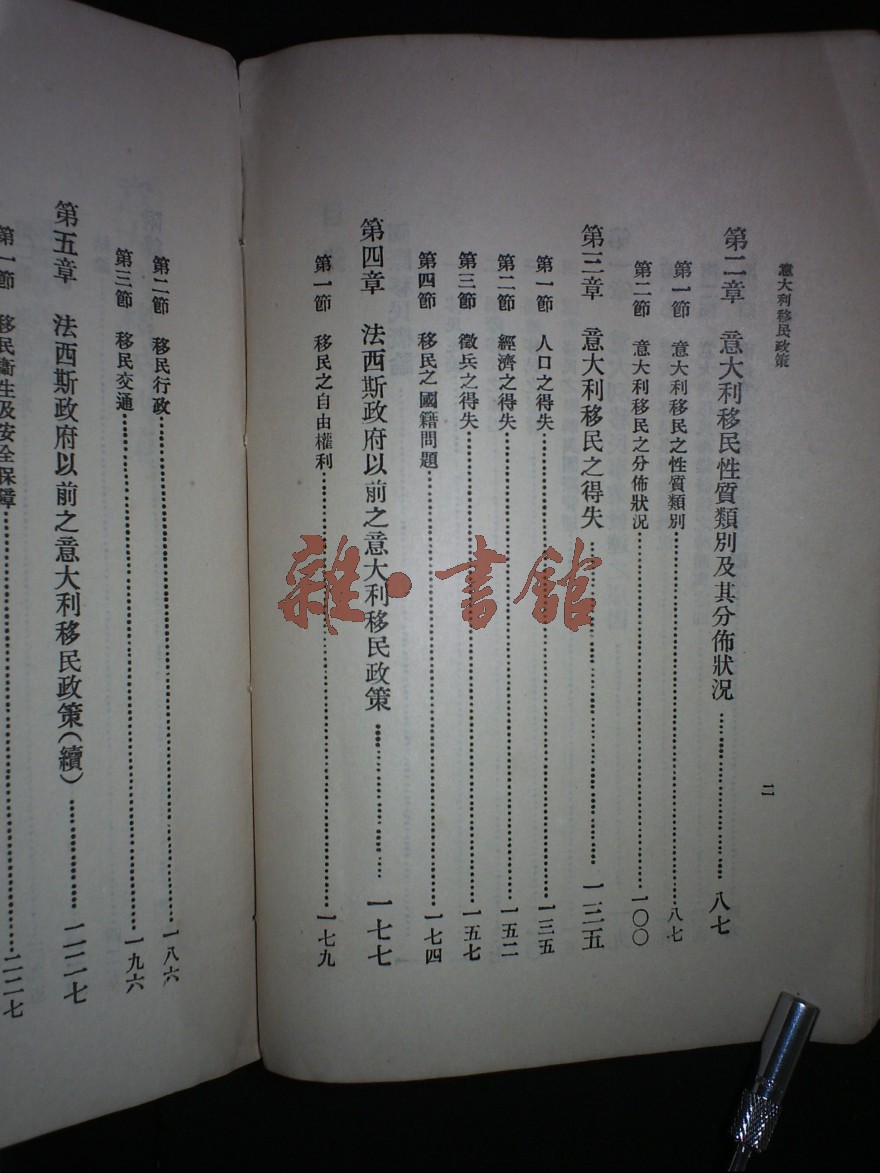 意大利移民政策
二
第二章 意大利移民性質類別及其分佈狀況……八七
第一節 意大利移民之性質類別……八七
第二節 意大利移民之分佈狀況……一〇〇
第三章 意大利移民之得失……一三五
第一節 人口之得失……一三五
第二節 經濟之得失……一五二
第三節 徵兵之得失……一五七
第四節 移民之國籍問題……一七四
第四章 法西斯政府以前之意大利移民政策……一七七
第一節 移民之自由權利……一七九
第二節 移民行政……一八六
第三節 移民交通……一九六
第五章 法西斯政府以前之意大利移民政策(續)……二二七
第一節 移民衞生及安全保障……二二七
雜·書館